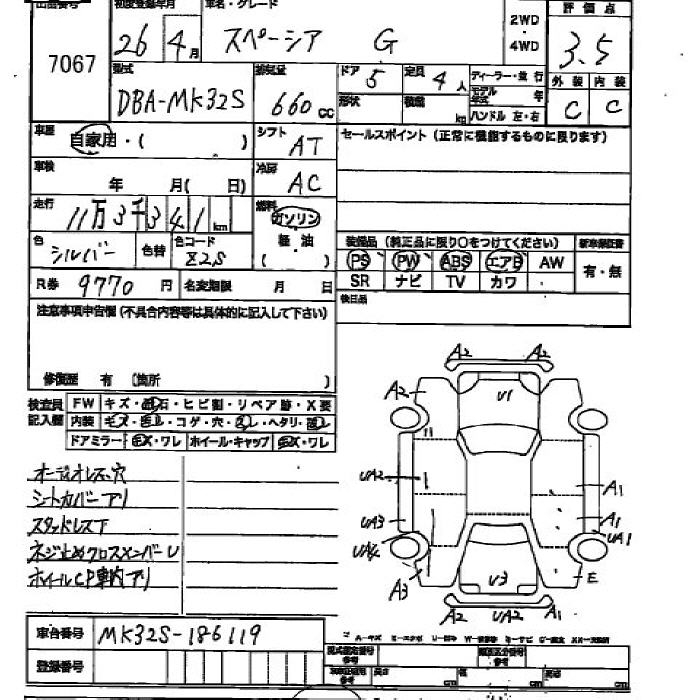 出品番号 初度登録年月 車名・グレード 2WD 評価点
7067 26年 4月 スペーシア G 4WD 3.5
型式 排気量 ドア 5 定員 4人 ディーラー・並行 外装 内装
DBA-MK32S 660cc 形状 積載 kg モデル年式 年 C C
ハンドル 左・右
車歴 自家用・( ) シフト AT セールスポイント (正常に機能するものに限ります)
車検 年 月( 日) 冷房 AC
走行 11万3千341km 燃料 ガソリン
軽油
( )
色 シルバー 色替 色コード Z2S 装備品 (純正品に限り○をつけてください) 新車保証書
PS PW ABS エアB AW 有・無
R券 9770円 名変期限 月 日 SR ナビ TV カワ
注意事項申告欄(不具合内容等は具体的に記入して下さい) 後日品
修復歴 有 (箇所 )
検査員 FW キズ・飛石・ヒビ割・リペア跡・X要
記入欄 内装 キズ・コゲ・穴・ヘタリ
ドアミラー キズ・ワレ ホイール・キャップ キズ・ワレ
オーディオレス、穴
シートカバーアリ
スタッドレスT
ネジ止めクロスメンバーU
ホイールCP車内アリ
A2 A2
A2 V1
UA2 A1
UA3 A1
UA4 UA1
A3 V3 E
A2 UA2 A1
車台番号 MK32S-186119
登録番号
型式指定番号 参考 類別区分番号 参考
長さ cm 幅 cm 高さ cm